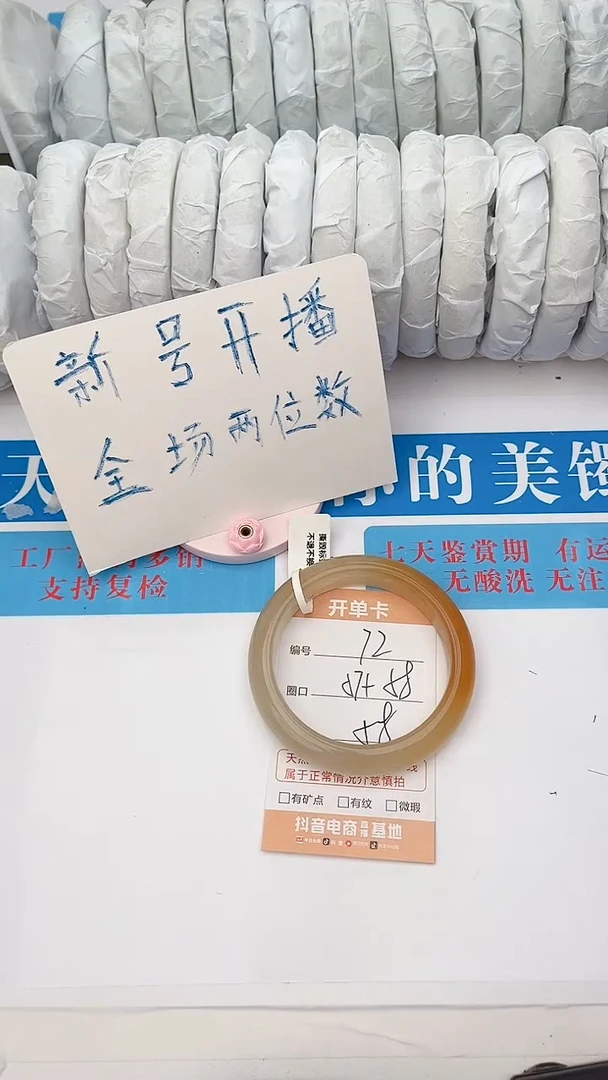 新号开播
全场两位数
天
你的美镯
工厂
支持复检
七天鉴赏期 有运
无酸洗 无注
开单卡
编号 72
圈口 57+ 58
58
属于正常情况介意慎拍
□有矿点 □有纹 □微瑕
抖音电商直播基地